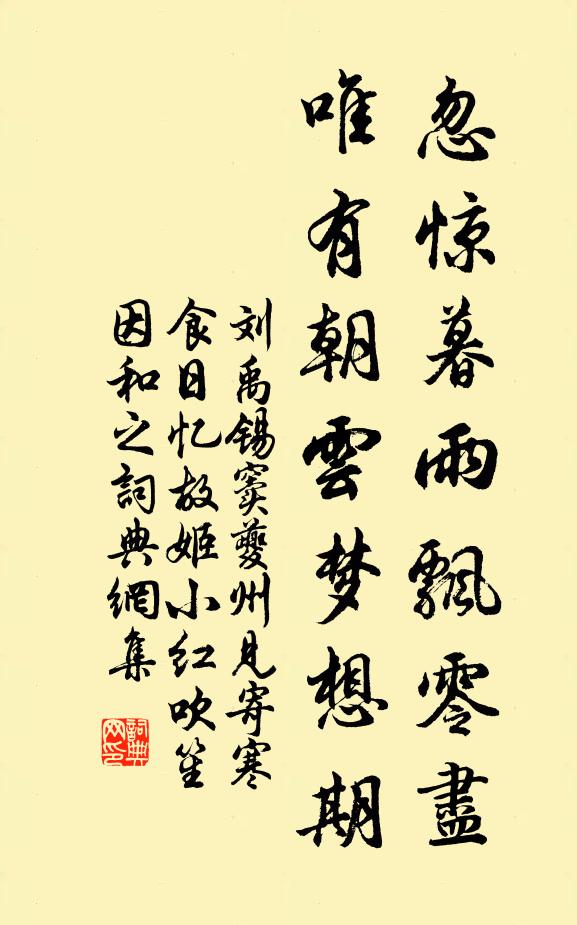 忽惊暮雨飘零盡
唯有朝雲梦想期
刘禹锡窦夔州見寄寒
食日忆故姬小红吹笙
因和之詞典網集
詞典
网印